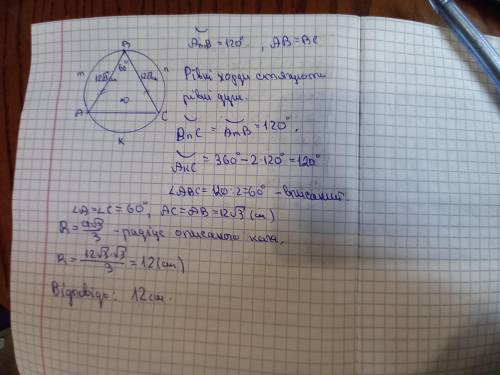 B
60°
m
n
12√3см
12√3см
O
A
C
K
AmB = 120°, AB = BC
Рівні хорди стягують
рівні дуги.
BnC = AmB = 120°,
AKC = 360° - 2·120° = 120°
∠ABC = 120 : 2 = 60° - вписаний
∠A = ∠C = 60°, AC = AB = 12√3 (см)
R = a√3/3 - радіус описаного кола,
R = 12√3·√3/3 = 12 (см)
Відповідь: 12 см.